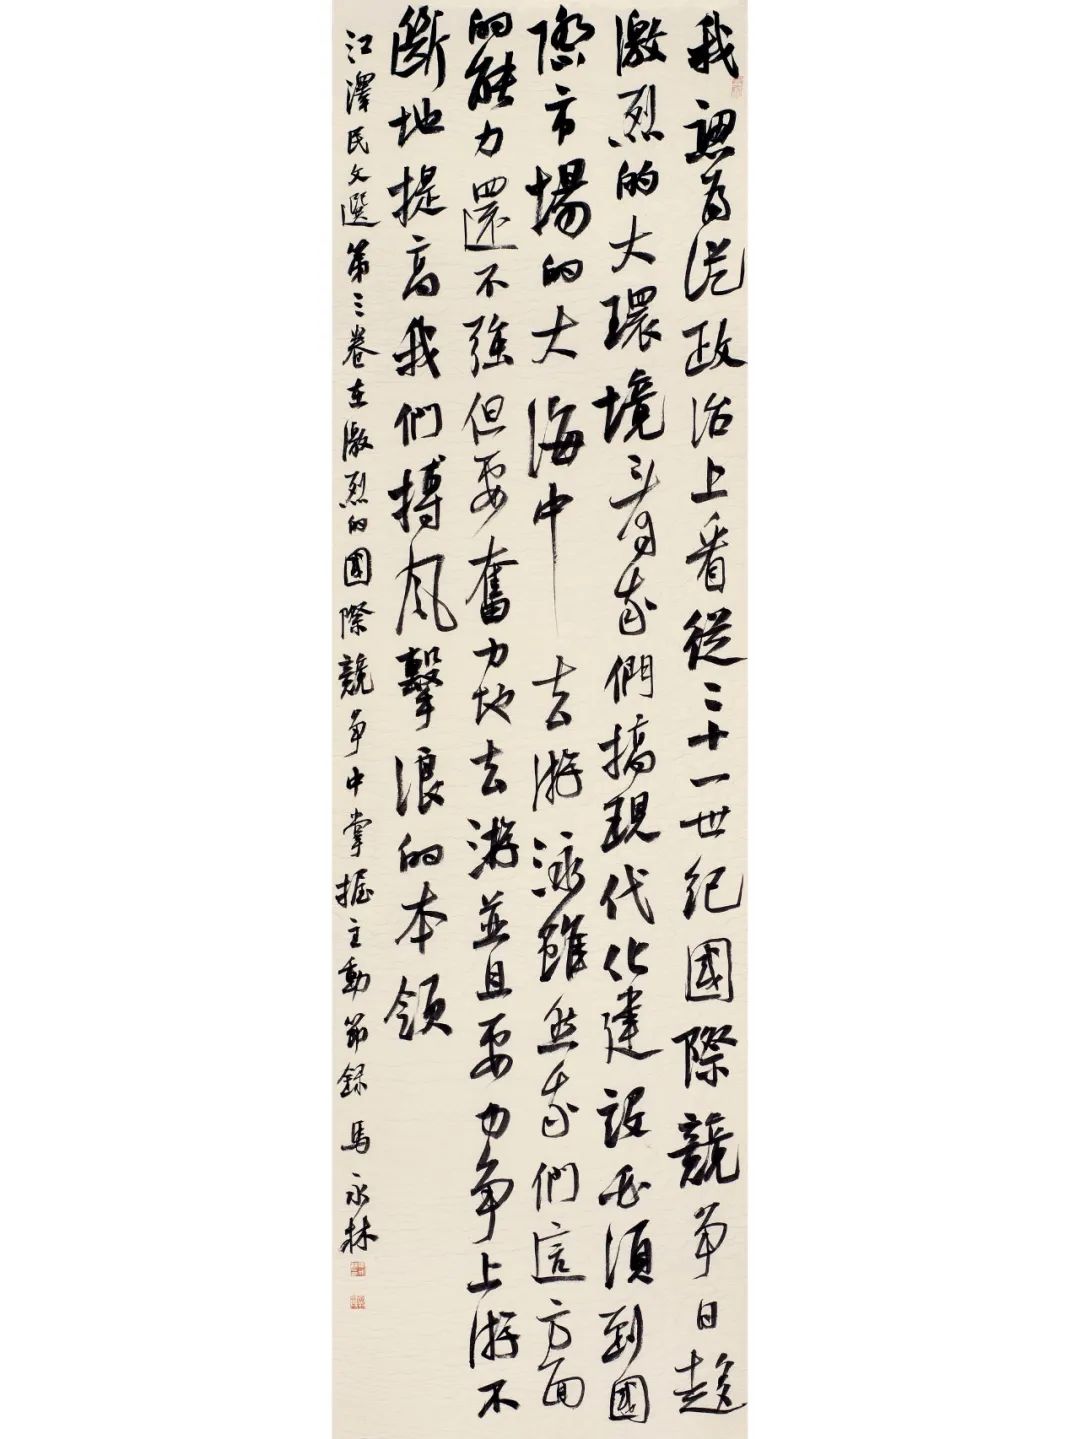 我認为從政治上看從二十一世紀國際競争日趨
激烈的大環境看我們搞現代化建設必須到國
際市場的大海中去游泳雖然我們這方面
的能力還不強但要奮力地去游並且要力争上游不
斷地提高我們搏風擊浪的本領
江澤民文選第三卷在激烈的國際競争中掌握主動節録 馬永林